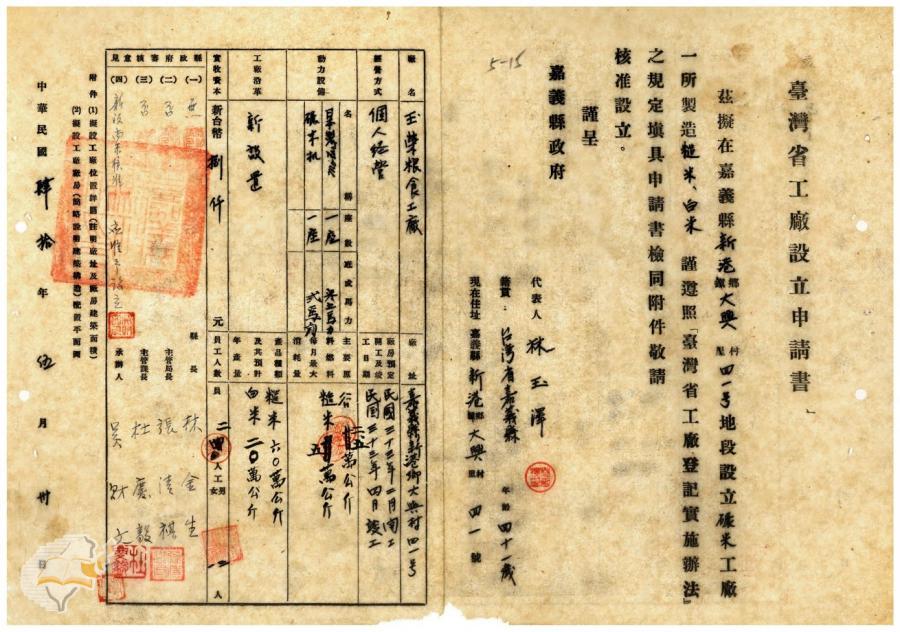 臺灣省工廠設立申請書
茲擬在嘉義縣新港鄉鎮大興村里四一號地段設立碾米工廠
一所製造糙米、白米 謹遵照「臺灣省工廠登記實施辦法」
之規定填具申請書檢同附件敬請
核准設立。
謹呈
嘉義縣政府
5-15
代表人 林玉澤
籍貫 台灣省嘉義縣 年齡 四十一歲
現在住址 嘉義縣新港鄉鎮大興村里 四一號
廠名 玉榮粮食工廠
廠址 嘉義縣新港鄉大興村四一號
經營方式 個人經營
廠房預定開工及竣工日期 民國三十三年二月開工
民国三十三年四月竣工
動力設備 名稱 座數 匹或馬力
一座
碾米机 一座 弍馬力
主要原料總料每月最大消耗量
谷 萬公斤
糙米 五萬公斤
工廠沿革 新設置
產品種類及其預計年產量
糙米 六〇萬公斤
白米 二〇萬公斤
實收資本 新台幣 捌仟 元
員工人數 員 二人 工 男 女 二人
縣政府審核意見
(一) 無
(二) 否
(三) 否
(四)
縣長 林金生
主管局長 張清祺
主管課長 杜慶毅
承辦人 吳財文
附件 (1) 擬設工廠位置詳圖(註明廠址及廠房建築面積)
(2) 擬設工廠廠房(簡略說明建築構造)配置平面圖
中華民國 肆拾 年 伍 月 卅 日